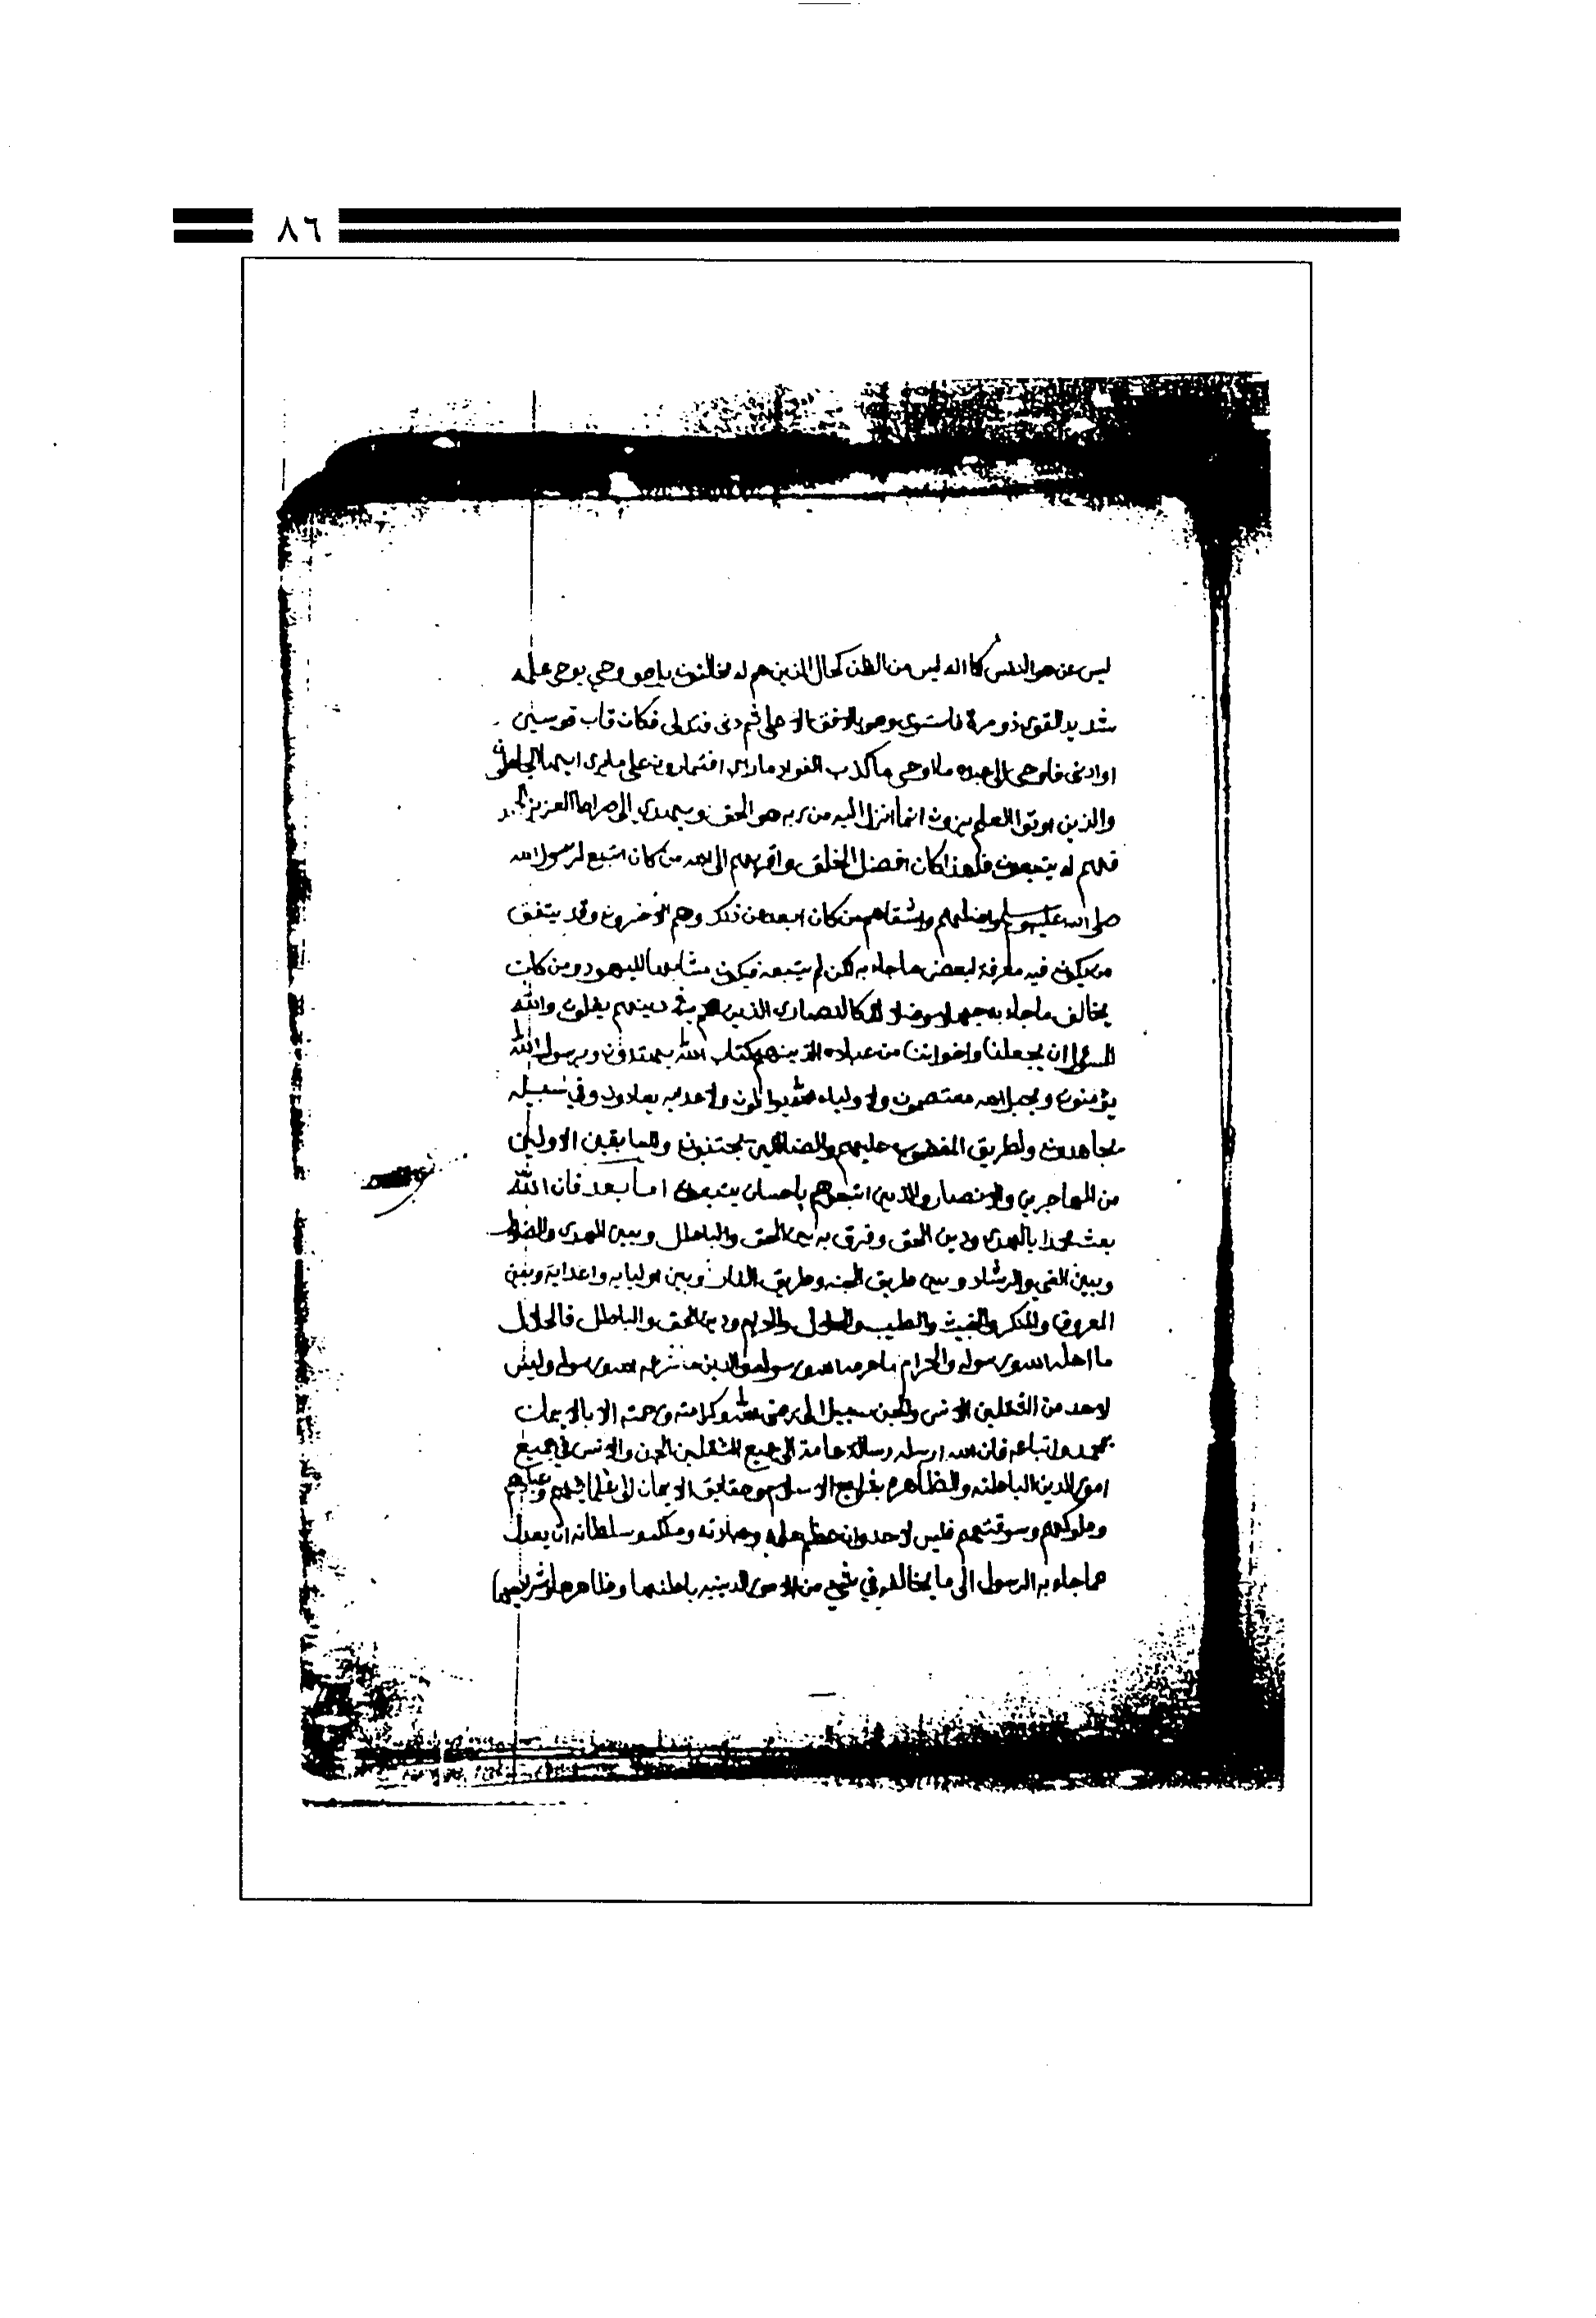 ٨٦
ليس عن هو النفس كما انه ليس من الظن كحال الذين هم له مخالفون بل هو وحي يوحى علمه
شديد القوى ذو مرة فاستوى وهو بالافق الاعلى ثم دنى فتدلى فكان قاب قوسين
او ادنى فاوحى الى عبده ما اوحى ما كذب الفواد ما راى افتمارونه على ما يرى ايها الجاهلون
والذين اوتوا العلم يرون انما انزل اليه من ربه هو الحق ويهدي الى صراط العزيز الحميد
فهم له يتبعون فلهذا كان افضل الخلق واقربهم الى الله من كان اتبع لرسول الله
صلى الله عليه وسلم واضلهم واشقاهم من كان ابعد عن ذلك وهم الاخسرون وقد يتفق
من يكون فيه معرفة لبعض ما جاء به لكن لم يتبعه فيكون مشابها لليهود ومن كان
يخالف ما جاء به جهلا وضلالا كالنصارى الذين هم في دينهم يغلون والله
المسؤل ان يجعلنا واخواننا من عباده الذين هم بكتاب الله يهتدون وبرسول الله
يؤمنون وبحبل الله معتصمون ولاولياء الله يوالون ولاعدايه يعادون وفي سبيله
يجاهدون ولطريق المغضوب عليهم والضالين يجتنبون وللسابقين الاولين
من المهاجرين والانصار والذين اتبعوهم باحسان يتبعون اما بعد فان الله
بعث محمدا بالهدى ودين الحق وفرق به بين الحق والباطل وبين الهدى والضلال
وبين الغي والرشاد وبين طريق الجنه وطريق النار وبين اوليايه واعدايه وبين
المعروف والمنكر والخبيث والطيب والحلال والحرام ودين الحق والباطل فالحلال
ما احله الله ورسوله والحرام ما حرمه الله ورسوله والدين ما شرعه الله ورسوله وليس
لاحد من الثقلين الانس والجن سبيل الى رضى الله وكرامته ورحمته الا بالايمان
بمحمد واتباعه فان الله ارسله رسالة عامة الى جميع الثقلين الجن والانس في جميع
امور الدين الباطنه والظاهره بشرايع الاسلام وحقايق الايمان الى علمايهم وعبادهم
وملوكهم وسوقتهم فليس لاحد وان عظم علمه وعبادته وملكه وسلطانه ان يعدل
عما جاء به الرسول الى ما يخالفه في شيء من الامور الدينيه باطنها وظاهرها وشرايعها